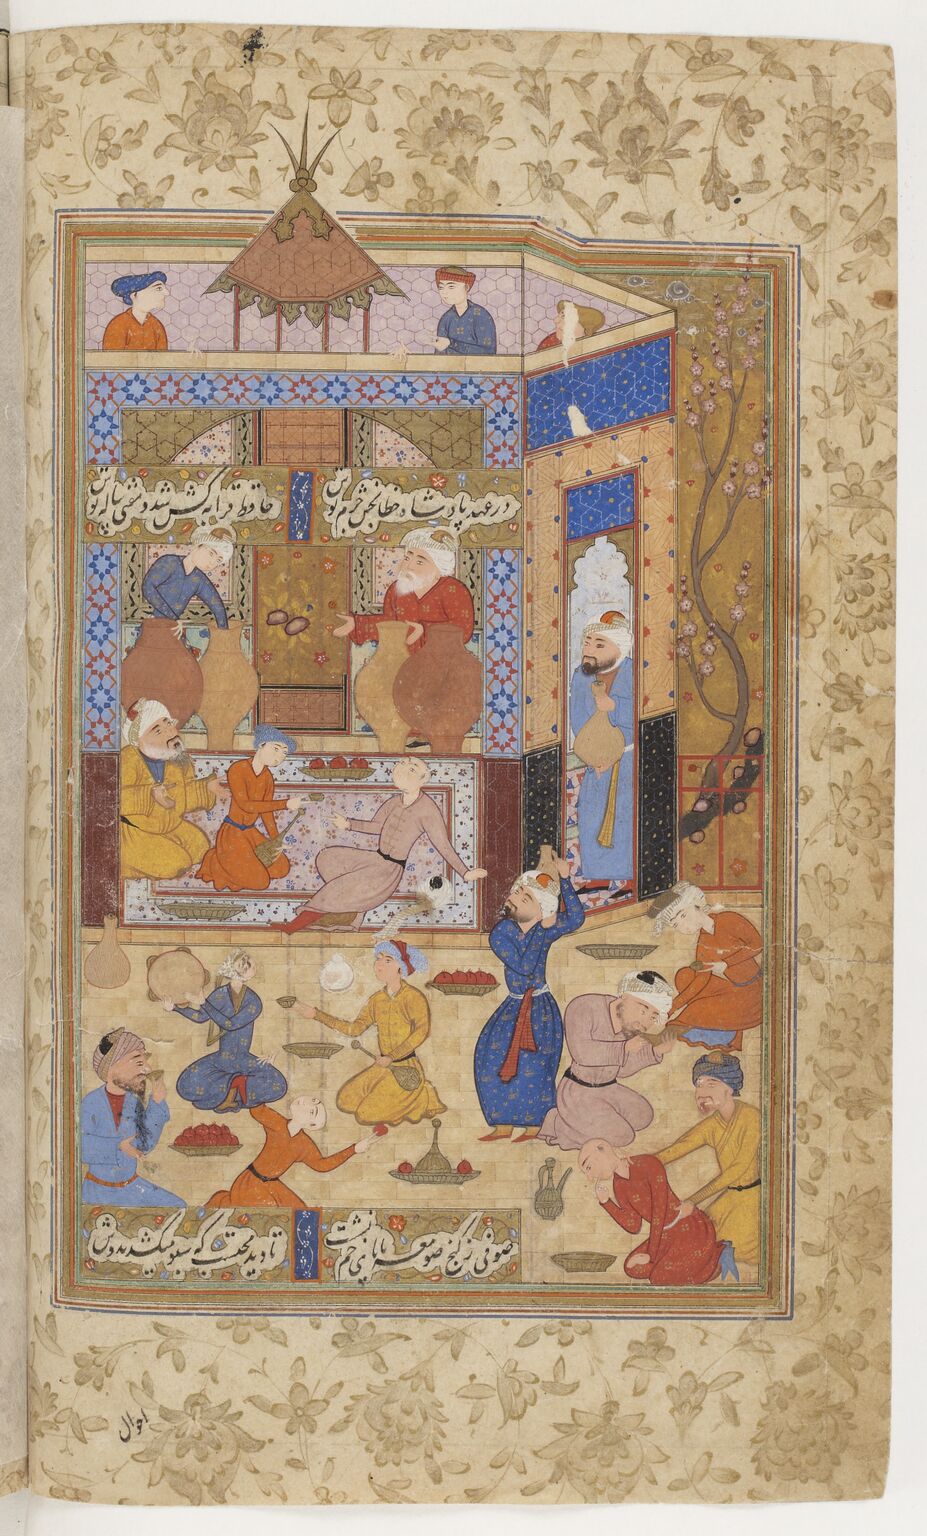 در عهد پادشاه خطابخش جرم پوش
حافظ قرابه کش شد و مفتی پیاله نوش
صوفی ز کنج صومعه با پای خم نشست
تا دید محتسب که سبو میکشد بدوش
احوال